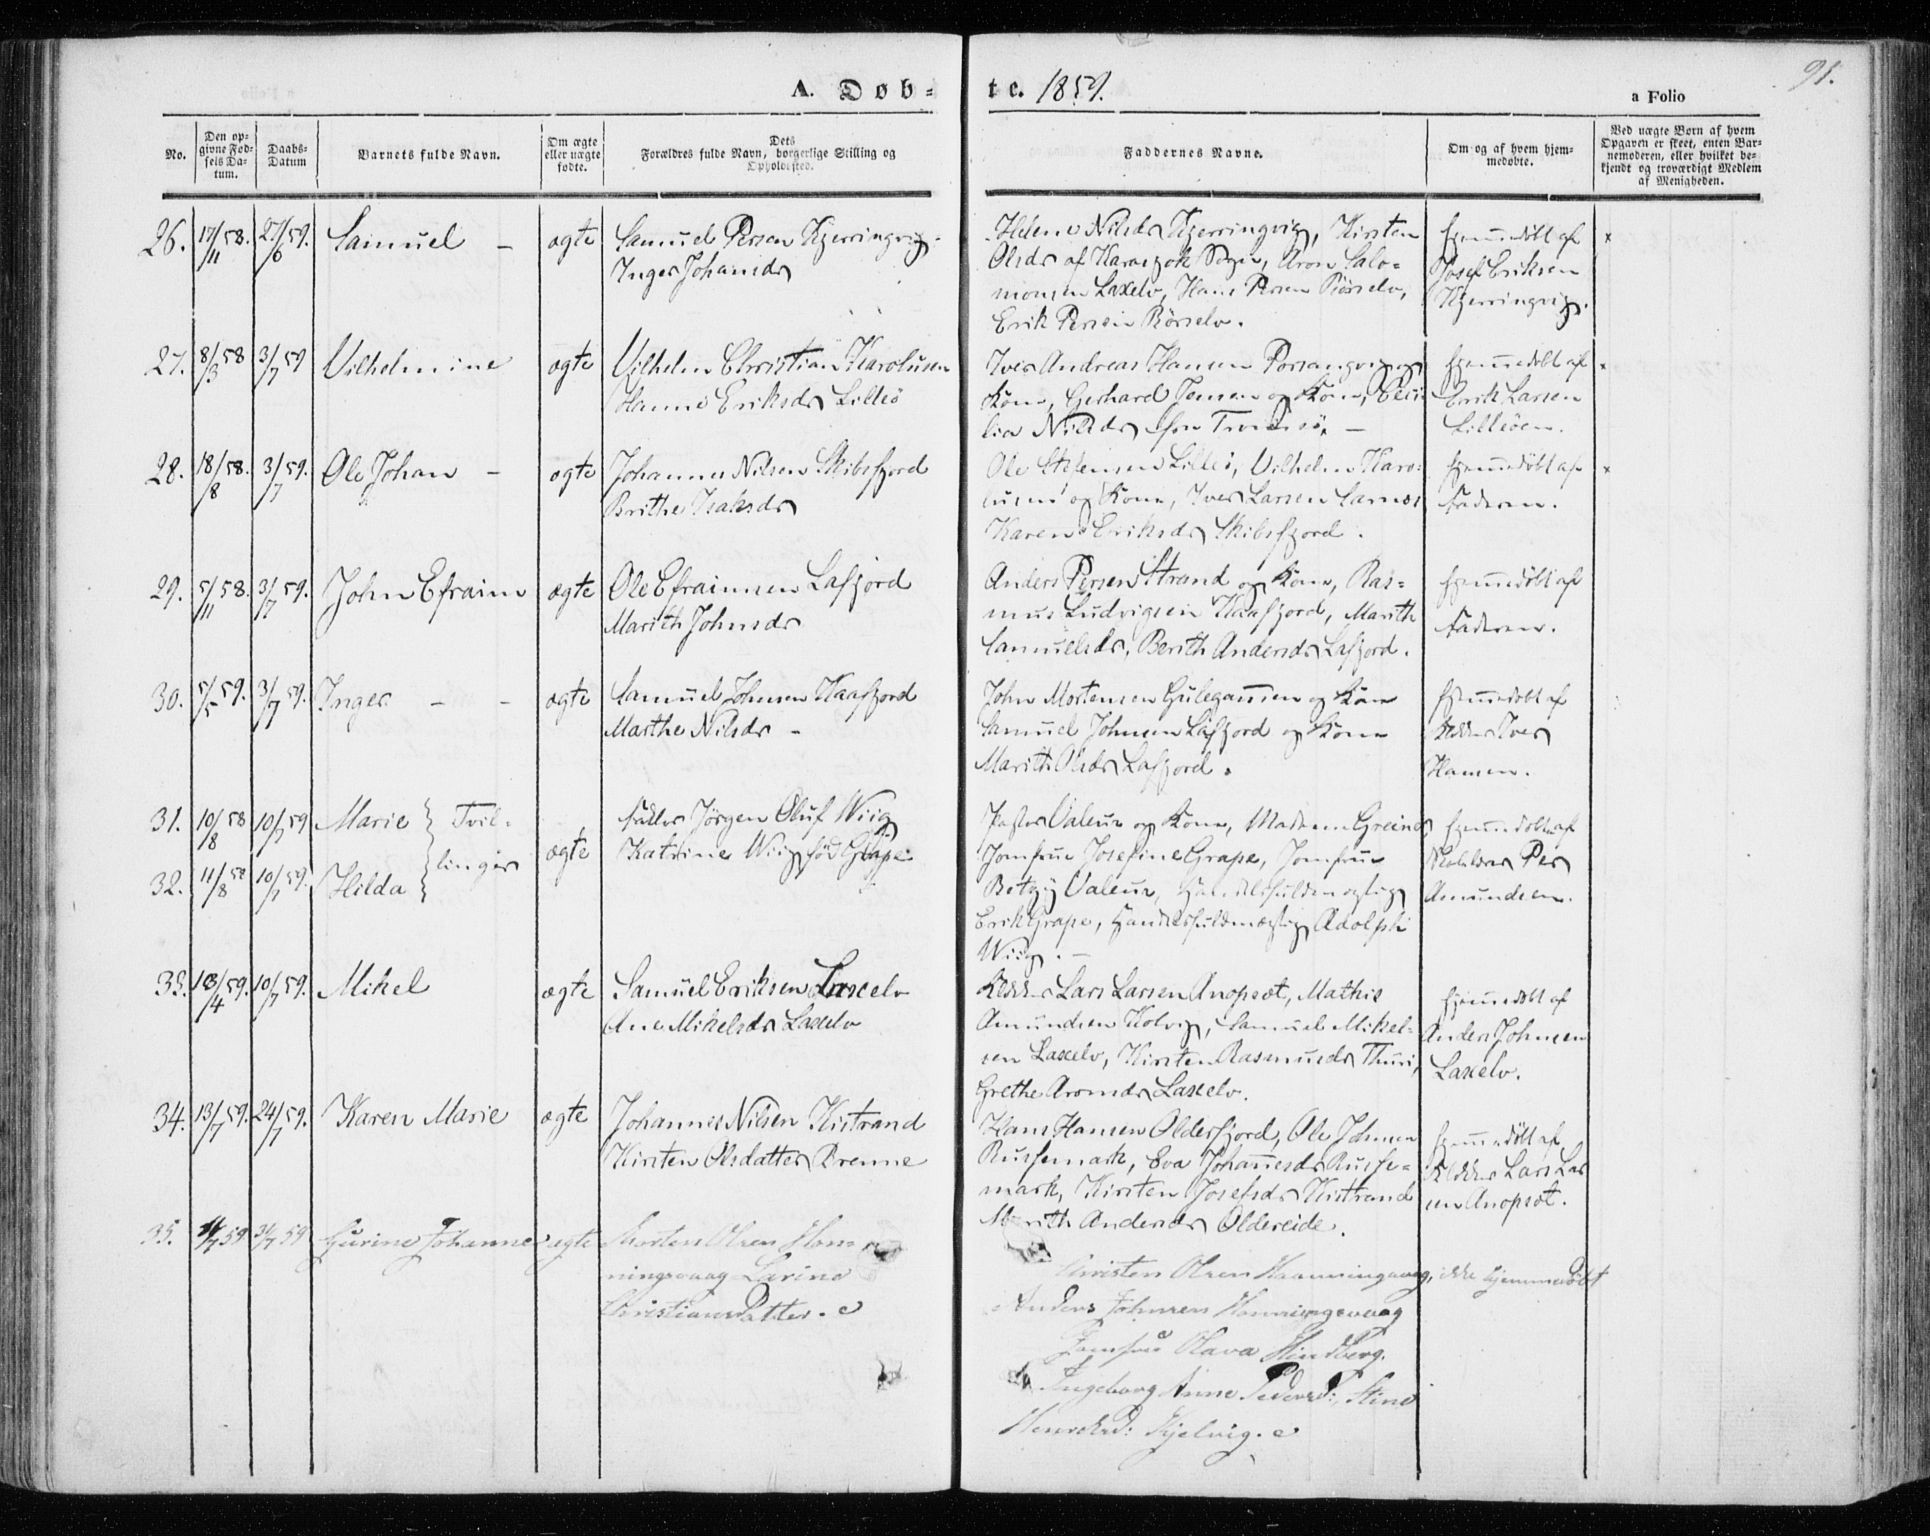 91.
A. Døb-
te. 1859.
a Folio
No.
Den op-
givne Fød-
sels Da-
tum.
Daabs-
Datum
Barnets fulde Navn.
Om ægte
eller uægte
fødte.
Dets
Forældres fulde Navn, borgerlige Stilling og
Opholdssted.
Faddernes Navne.
Om og af hvem hjem-
medøbte.
Ved uægte Børn af hvem
Opgaven er skeet, enten Bar-
nemoderen, eller hvilket be-
kjendt og troværdigt Medlem
af Menigheden.
26. 17/11 58. 27/6 59. Samuel - ægte
Samuel Persen Kjerringvig
Inger Johansdr
Helene Nilsdr Kjerringvig, Kirsten
Olsdr af Karasjok Sogn, Aron Salo-
monsen Laxelv, Hans Persen Børselv,
Erik Persen Børselv.
hjemmedøbt af
Josef Eriksen
Kjerringvig.
27. 8/3 58 3/7 59 Vilhelmine ægte
Vilhelm Christian Karolusen
Hanne Eriksdr Lilleø
Iver Andreas Hansen Porsangvig og
Kone, Gerhard Jensen og Kone, Ceci-
lia Nilsdr fra Tromsø. -
hjemmedøbt af
Erik Larsen
Lilleøen.
28. 18/8 58. 3/7 59. Ole Johan - ægte
Johannes Nilsen Skibsfjord
Brithe Isaksdr
Ole Stefensen Lilleø, Vilhelm Karo-
lusen og Kone, Iver Larsen Sarnes
Karen Eriksdr Skibsfjord.
hjemmedøbt af
Faderen.
29. 5/11 58. 3/7 59. John Efraim ægte
Ole Efraimsen Lafjord
Marith Johnsdr
Anders Persen Strand og Kone, Ras-
mus Ludvigsen Kaafjord, Marith
Samuelsdr, Berith Andersdr Lafjord.
hjemmedøbt af
Faderen.
30. 5/5 59. 3/7 59. Inger - - ægte
Samuel Johnsen Kaafjord
Marthe Nilsdr -
John Mortensen Gulegammen og Kone
Samuel Johnsen Lafjord og Kone
Marith Olsdr Lafjord.
hjemmedøbt af
Klokker Iver
Hansen.
31. 10/8 58 10/7 59 Marie } Tvil-
32. 11/8 58 10/7 59. Hilda } linger
ægte
Jørgen Oluf Wiig
Katrine Wiig fød Grape
Pastor Valeur og Kone, Madam Greiner
Jomfrue Josefine Grape, Jomfrue
Betzy Valeur, Handelsfuldmægtig
Erik Grape, Handelsfuldmægtig Adolph
Wiig. -
hjemmedøbt af
Per
Amundsen.
33. 18/4 59. 10/7 59. Mikel ægte
Samuel Eriksen Laxelv
Ane Mikelsdr Laxelv
Klokker Lars Larsen Anopset, Mathis
Amundsen Kolvig, Samuel Mikel-
sen Laxelv, Kirsten Rasmusdr Thuri,
Grethe Aronsdr Laxelv.
hjemmedøbt af
Anders Johnsen
Laxelv.
34. 13/7 59. 24/7 59. Karen Marie ægte
Johannes Nilsen Kistrand
Kirsten Olsdatter Brenne
Hans Hansen Olderfjord, Ole Johnsen
Russemark, Eva Johannesdr Russe-
mark, Kirsten Josefsdr Kistrand
Marith Andersdr Oldereide.
hjemmedøbt af
Klokker Lars Lar
sen Anopset.
35. 59 31/7 59 Gurine Johanne ægte
Morten Olsen Hon-
ningsvaag Larine
Christiansdatter.
Christen Olsen Honningsvaag,
Anders Johnsen Honningsvaag
Jomfru Olava Hindberg.
Ingeborg Anne Pedersd:, Stine
Henriksd: Kjelvig.
ikke hjemmedøbt